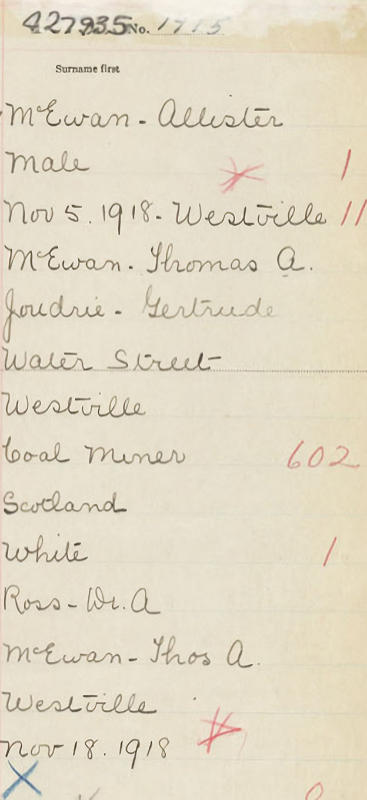 427935 No. 1915
Surname first
McEwan - Allister
Male 1
Nov 5. 1918 - Westville 11
McEwan - Thomas A.
Joudrie - Gertrude
Water Street
Westville
Coal Miner 602
Scotland
White 1
Ross - Dr. A
McEwan - Thos A.
Westville
Nov 18. 1918